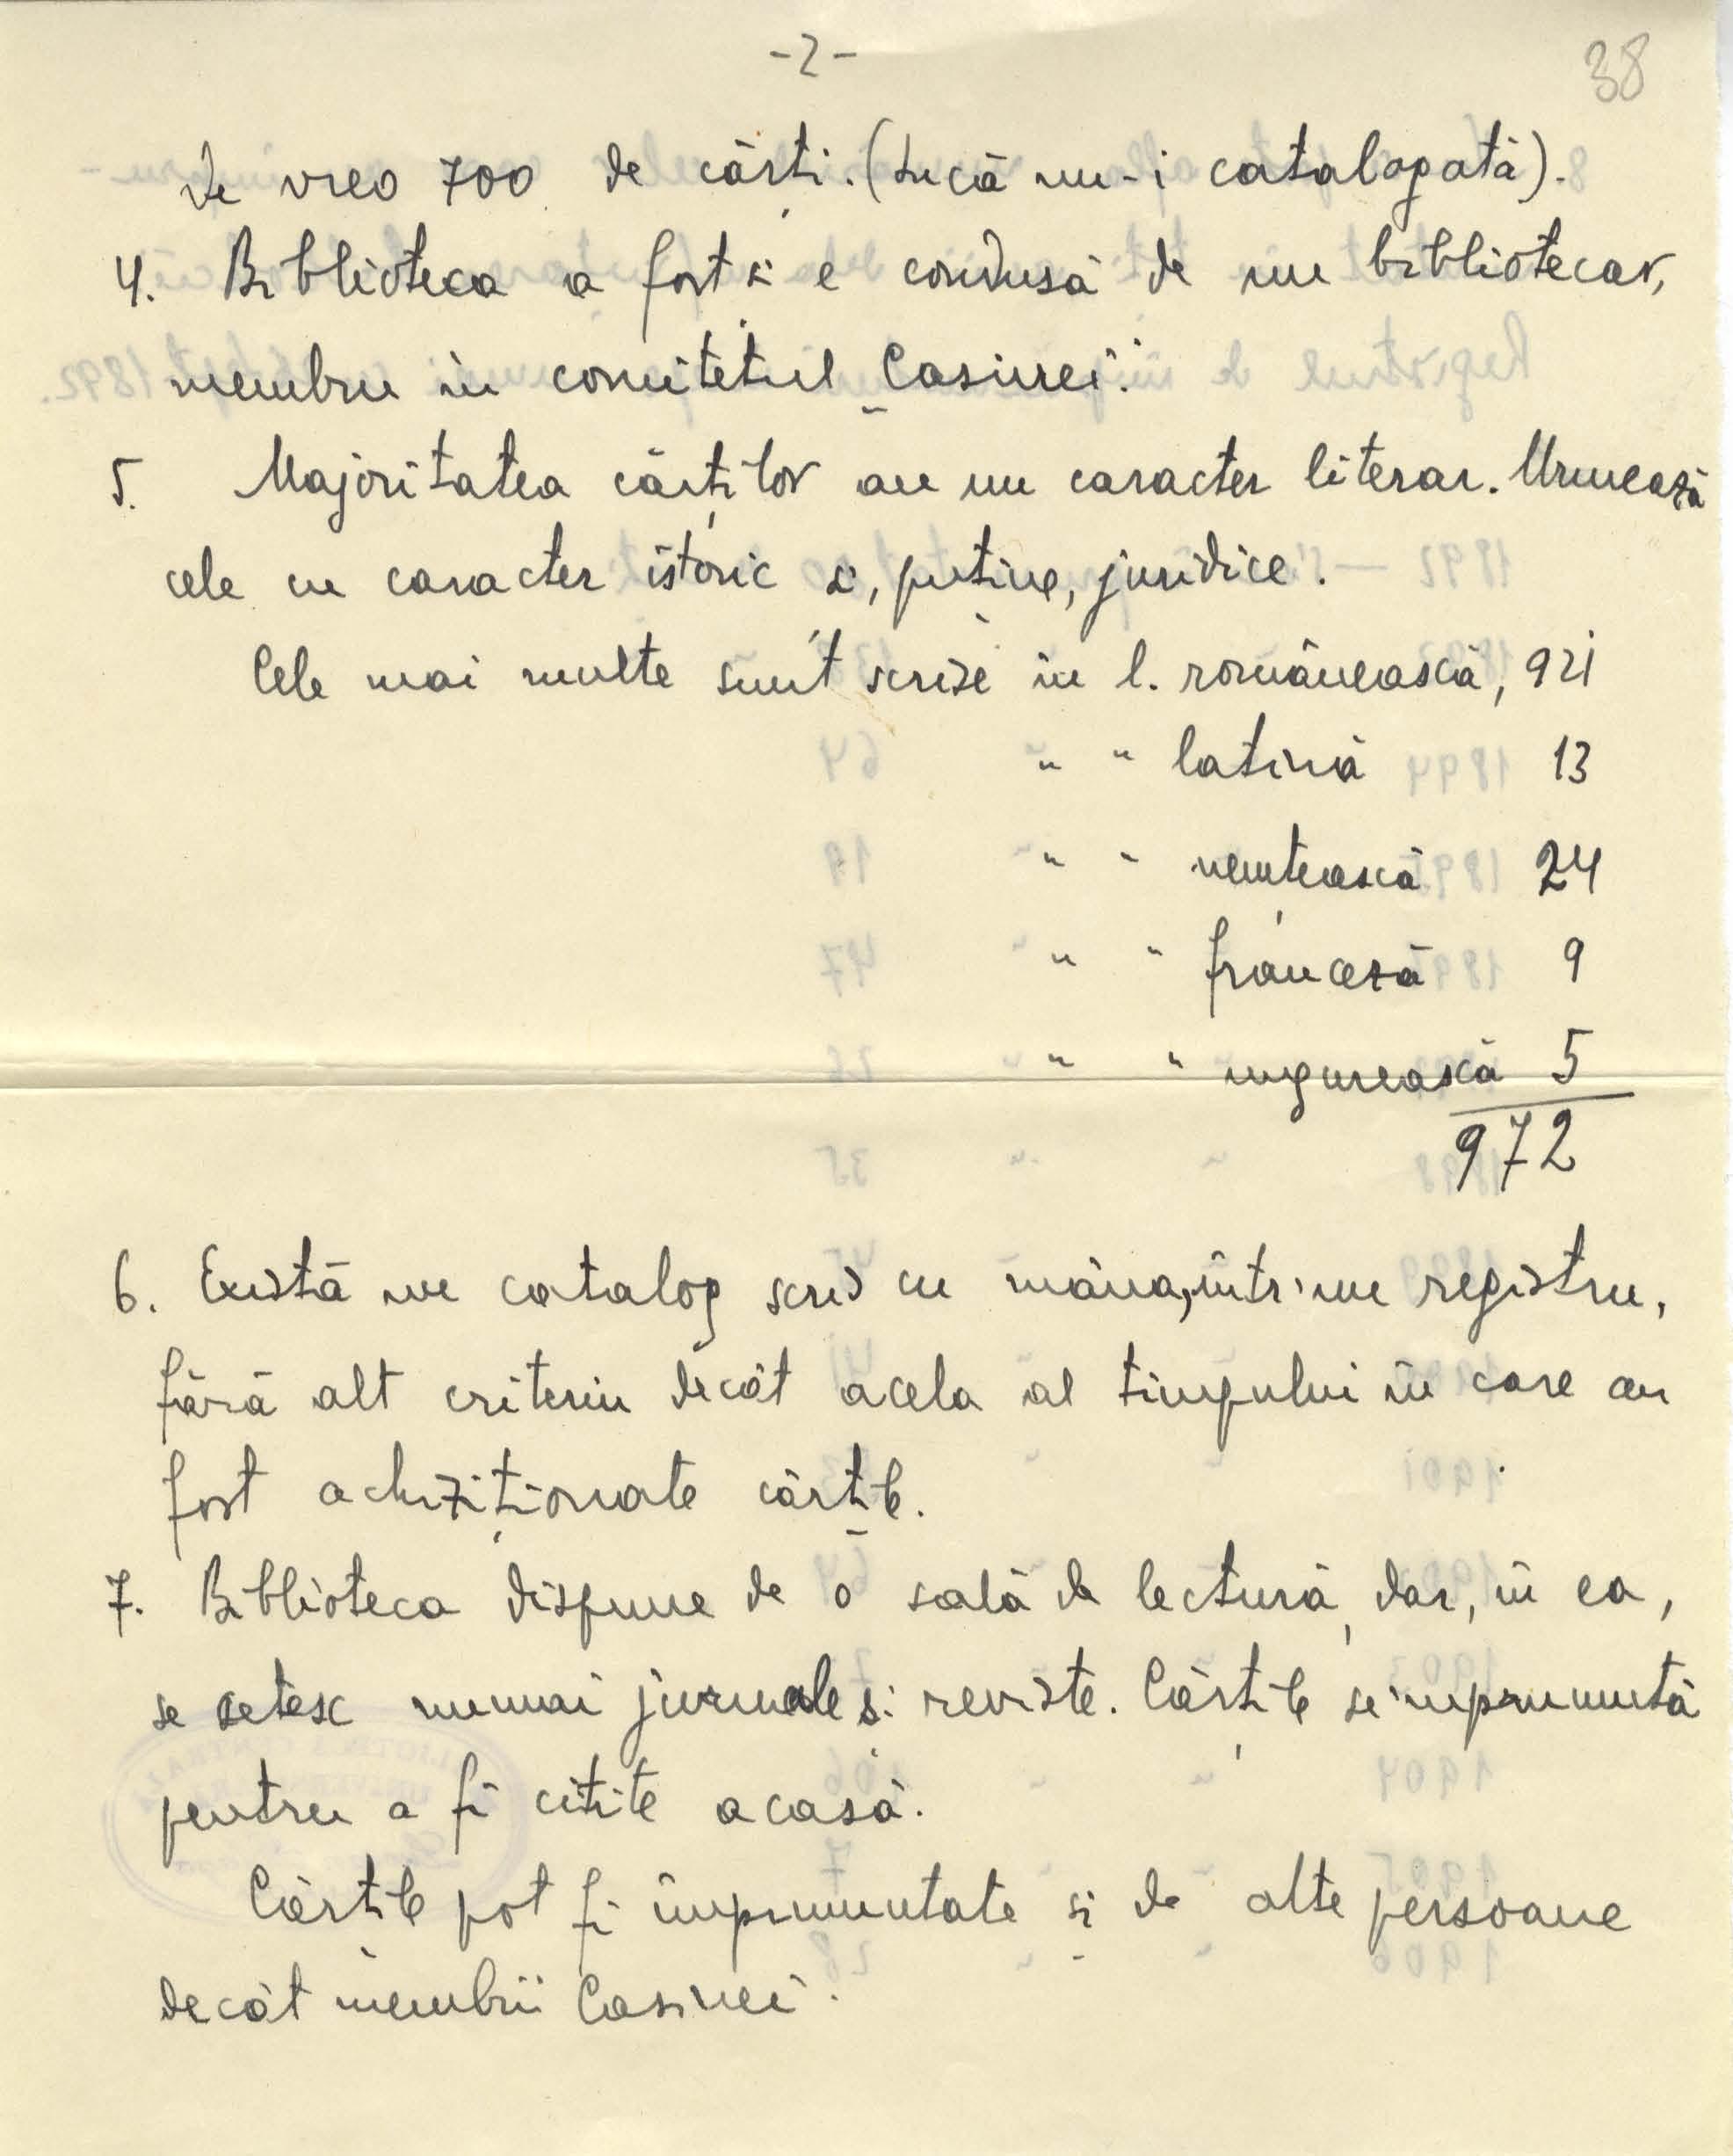 -2-
38
de vreo 700 de cărți. (Încă nu-i catalogată).
4. Biblioteca a fost și e condusă de un bibliotecar,
membru în comitetul Casinei.
5. Majoritatea cărților au un caracter literar. Urmează
cele cu caracter istoric și, puține, juridice.
Cele mai multe sunt scrise în l. românească, 921
" " latină 13
" " nemțească 24
" " franceză 9
" " ungurească 5
972
6. Există un catalog scris cu mâna, într'un registru,
fără alt criteriu decât acela al timpului în care au
fost achiziționate cărțile.
7. Biblioteca dispune de o sală de lectură, dar, în ea,
se cetesc numai jurnale și reviste. Cărțile se'mprumută
pentru a fi citite acasă.
Cărțile pot fi împrumutate și de alte persoane
decât membrii Casinei.